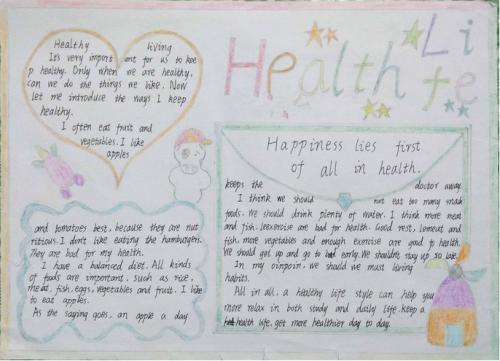 Health Life
Healthy living
It's very import ant for us to kee
p healthy. Only when we are healthy,
can we do the things we like. Now
let me introduce the ways I keep
healthy.
I often eat fruit and
vegetables. I like
apples
and tomatoes best, because they are nut
ritious. I don't like eating the hamburgers.
They are bad for my health.
I have a balanced diet. All kinds
of foods are important, such as rice,
meat, fish, eggs, vegetables and fruit. I like
to eat apples.
As the saying goes, an apple a day
Happiness lies first
of all in health.
keeps the doctor away.
I think we should not eat too many snack
foods. We should drink plenty of water. I think more meat
and fish, less exercise are bad for health. Good rest, less meat and
fish, more vegetables and enough exercise are good to health.
We should get up and go to bed early. We shouldn't stay up so late.
In my oinpoin, we should we must living
habits.
All in all, a healthy life style can help you
more relax in both study and daily life. keep a
health life, get more healthier day to day.